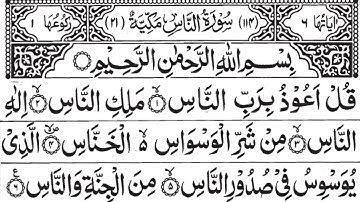 اٰیَاتُهَا ٦ (١١٤) سُوْرَةُ النَّاسِ مَكِّيَّةٌ (٢١) رُكُوْعُهَا ١
بِسْمِ اللّٰهِ الرَّحْمٰنِ الرَّحِيْمِ
قُلْ اَعُوْذُ بِرَبِّ النَّاسِ ۙ﴿١﴾ مَلِكِ النَّاسِ ۙ﴿٢﴾ اِلٰهِ
النَّاسِ ۙ﴿٣﴾ مِنْ شَرِّ الْوَسْوَاسِ ۙ۬ الْخَنَّاسِ ۪ۙ﴿٤﴾ الَّذِیْ
یُوَسْوِسُ فِیْ صُدُوْرِ النَّاسِ ۙ﴿٥﴾ مِنَ الْجِنَّةِ وَ النَّاسِ ﴿٦﴾